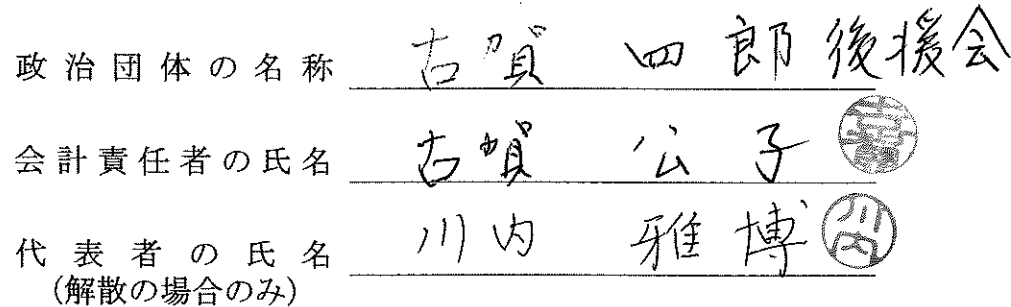 政治団体の名称 古賀 四郎後援会
会計責任者の氏名 古賀 公子 古賀
代表者の氏名 川内 雅博 川内
(解散の場合のみ)